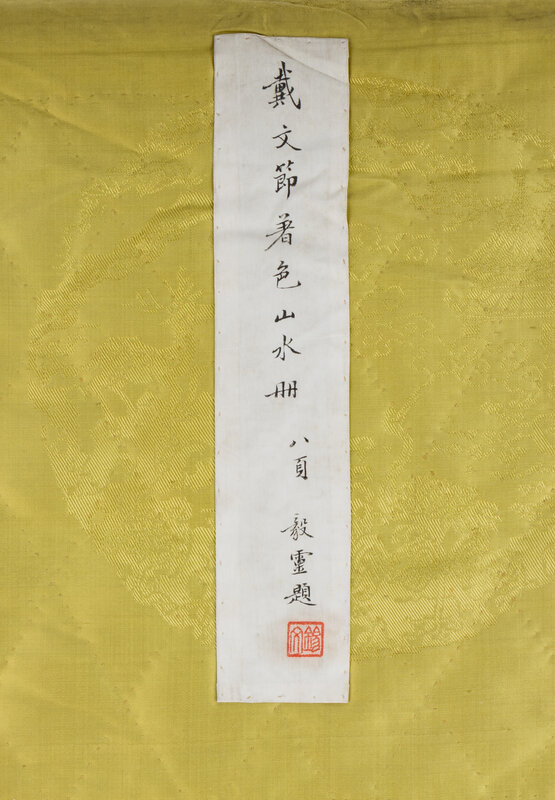 戴文節著色山水冊 八頁 毅靈題